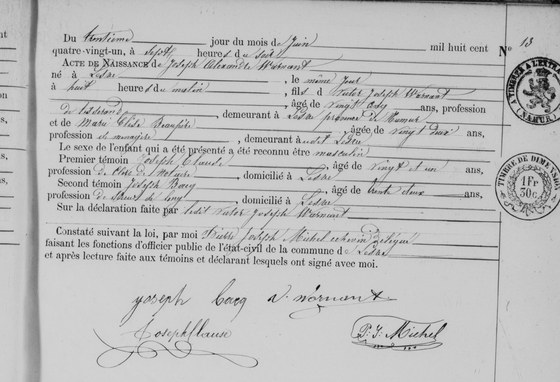 Du trentième jour du mois de Juin mil huit cent
quatre-vingt-un, à sept heures du soir
ACTE DE NAISSANCE de Joseph Alexandre Warnant
né à Lesve, le même jour
à huit heures du matin, fils d Victor Joseph Warnant
, âgé de vingt ans, profession
de , demeurant à Lesve province de Namur
et de Marie , âgée de vingt deux ans,
profession de ménagère, demeurant audit Lesve
Le sexe de l'enfant qui a été présenté a été reconnu être masculin
Premier témoin Joseph Claude, âgé de vingt et un ans,
profession de Clerc de Notaire, domicilié à Lesve
Second témoin Joseph Bacq, âgé de trente deux ans,
profession de , domicilié à Lesve
Sur la déclaration faite par ledit Victor Joseph Warnant
Constaté suivant la loi, par moi Pierre Joseph Michel échevin délégué
faisant les fonctions d'officier public de l'état-civil de la commune de Lesve
et après lecture faite aux témoins et déclarant lesquels ont signé avec moi.
joseph bacq V. warnant
Joseph P. J. Michel
N° 13
TIMBRE A L'EXTRA
(NAMUR)
TIMBRE DE DIMENS
1 Fr
30c